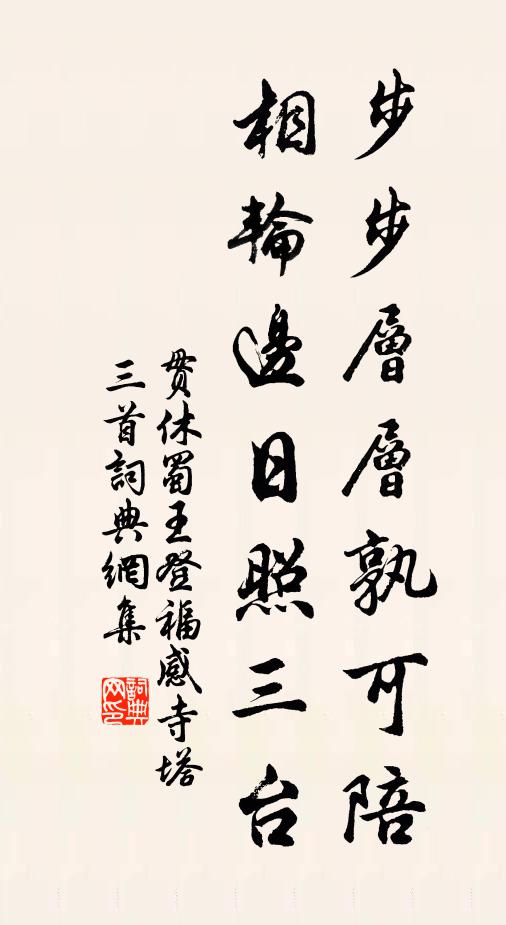 步步層層孰可陪
相輪邊日照三台
貫休蜀王登福感寺塔
三首詞典網集
詞典网印